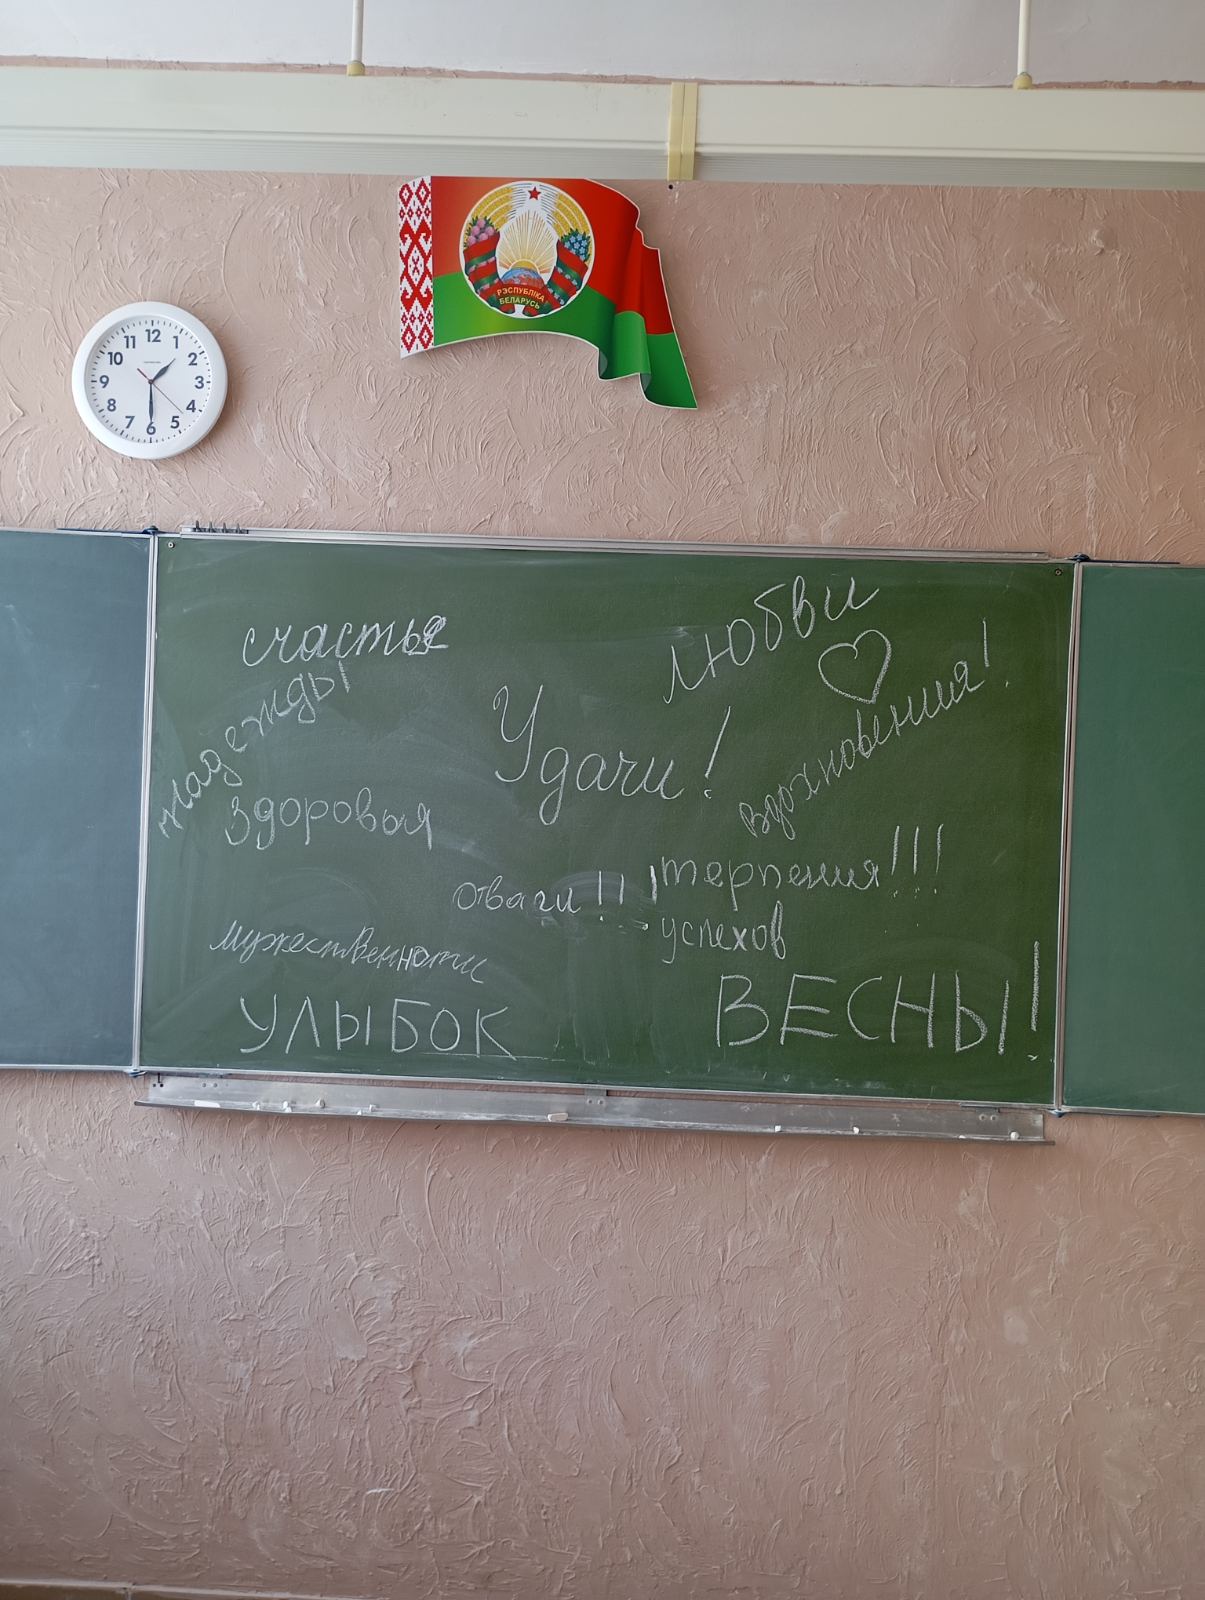 РЭСПУБЛІКА
БЕЛАРУСЬ
12
1
2
3
4
5
6
7
8
9
10
11
счастья
любви
надежды
Удачи!
вдохновения!
здоровья
терпения!!!
отваги!!!
успехов
мужественности
УЛЫБОК
ВЕСНЫ!